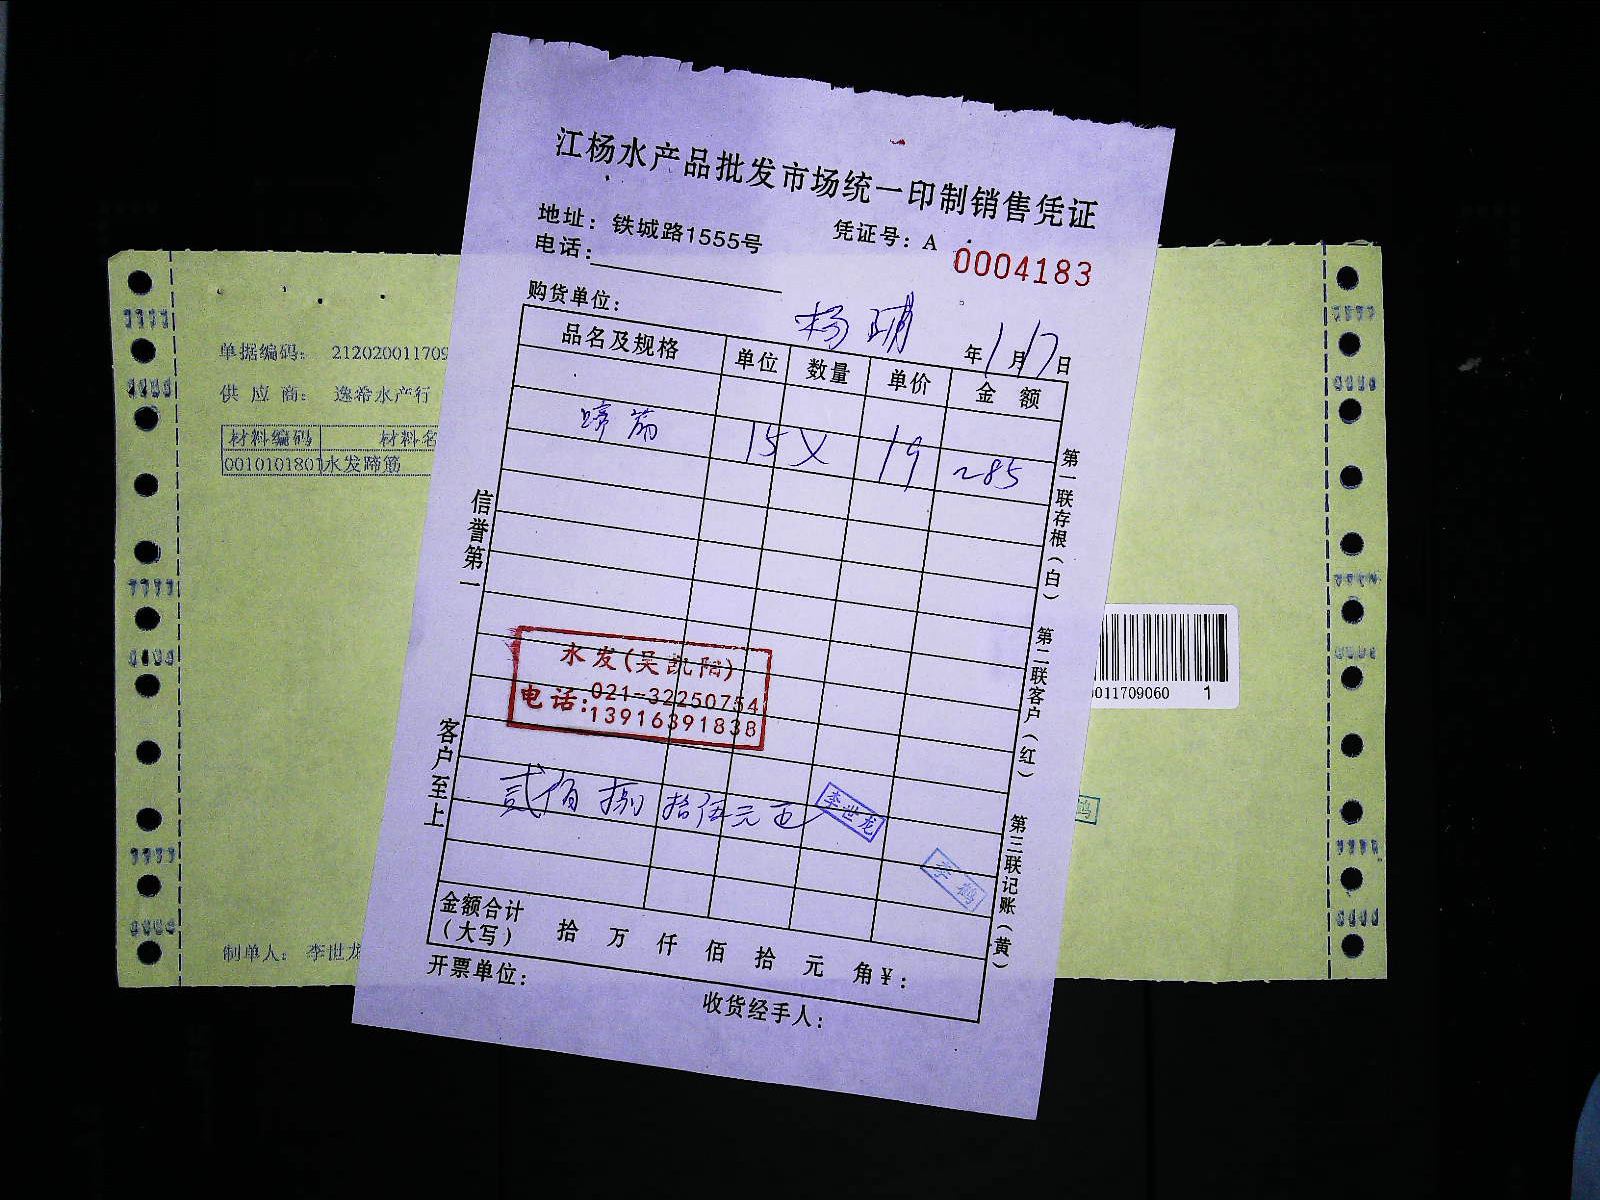 江杨水产品批发市场统一印制销售凭证
地址：铁城路1555号
凭证号：A 0004183
电话：
购货单位：
年1月17日
品名及规格 单位 数量 单价 金额
蹄筋 15 X 19 285
信誉第一
客户至上
第一联存根（白） 第二联客户（红） 第三联记账（黄）
水发(吴凯阳)
电话:021-32250754
13916391838
贰佰捌拾伍元正
李世龙
李鹤
金额合计
（大写）
拾 万 仟 佰 拾 元 角 ¥：
开票单位：
收货经手人：
单据编码： 212020011709
供应商： 逸希水产行
材料编码 材料名
0010101801 水发蹄筋
制单人： 李世龙
0011709060 1
鹤